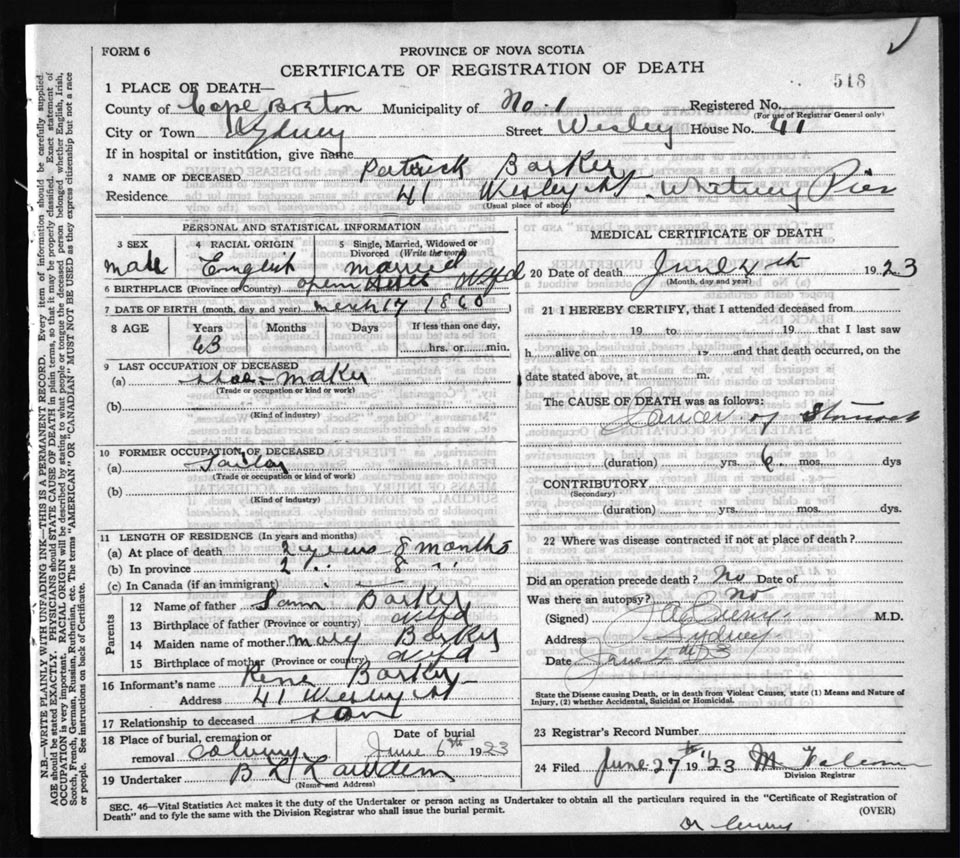 FORM 6
PROVINCE OF NOVA SCOTIA
CERTIFICATE OF REGISTRATION OF DEATH
518
1 PLACE OF DEATH—
County of Cape Breton Municipality of No. 1 Registered No.
(For use of Registrar General only)
City or Town Sydney Street Wesley House No. 41
If in hospital or institution, give name
2 NAME OF DECEASED Patrick Barker
Residence 41 Wesley St. Whitney Pier
(Usual place of abode)
PERSONAL AND STATISTICAL INFORMATION
3 SEX 4 RACIAL ORIGIN 5 Single, Married, Widowed or Divorced (Write the word)
Male English married
6 BIRTHPLACE (Province or Country) Nfld
7 DATE OF BIRTH (month, day and year) March 17 1860
8 AGE Years Months Days If less than one day,
63 hrs. or min.
9 LAST OCCUPATION OF DECEASED
(a) Shoe-maker
(Trade or occupation or kind or work)
(b)
(Kind of industry)
10 FORMER OCCUPATION OF DECEASED
(a)
(Trade or occupation or kind of work)
(b)
(Kind of industry)
11 LENGTH OF RESIDENCE (In years and months)
(a) At place of death 2 years 8 months
(b) In province 2 " 8 "
(c) In Canada (if an immigrant)
Parents
12 Name of father Sam Barker
13 Birthplace of father (Province or country) Nfld
14 Maiden name of mother Mary Barker
15 Birthplace of mother (Province or country) Nfld
16 Informant's name Barker
Address 41 Wesley St
17 Relationship to deceased son
18 Place of burial, cremation or removal Date of burial
June 6th 1923
19 Undertaker
(Name and Address)
MEDICAL CERTIFICATE OF DEATH
20 Date of death June 4th 1923
(Month, day and year)
21 I HEREBY CERTIFY, that I attended deceased from
19 to 19 that I last saw
h alive on 19 and that death occurred, on the
date stated above, at m.
The CAUSE OF DEATH was as follows:
Cancer of Stomach
(duration) yrs. 6 mos. dys
CONTRIBUTORY
(Secondary)
(duration) yrs. mos. dys.
22 Where was disease contracted if not at place of death?
Did an operation precede death? No Date of
Was there an autopsy? No
(Signed) M.D.
Address Sydney
Date June
State the Disease causing Death, or in death from Violent Causes, state (1) Means and Nature of
Injury, (2) whether Accidental, Suicidal or Homicidal.
23 Registrar's Record Number
24 Filed June 27th 1923
Division Registrar
SEC. 46—Vital Statistics Act makes it the duty of the Undertaker or person acting as Undertaker to obtain all the particulars required in the "Certificate of Registration of
Death" and to fyle the same with the Division Registrar who shall issue the burial permit. (OVER)
N.B.—WRITE PLAINLY WITH UNFADING INK—THIS IS A PERMANENT RECORD. Every item of information should be carefully supplied.
AGE should be stated EXACTLY. PHYSICIANS should STATE CAUSE OF DEATH in plain terms, so that it may be properly classified. Exact statement of
OCCUPATION is very important. RACIAL ORIGIN will be described by stating to what people or tongue the deceased person belonged whether English, Irish,
Scotch, French, German, Russian, Ruthenian, etc. The terms "AMERICAN" OR "CANADIAN" MUST NOT BE USED as they express citizenship but not a race
or people. See instructions on back of Certificate.